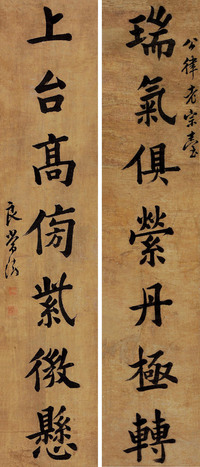 公律老宗臺
瑞氣俱縈丹極轉
上台髙傍紫微懸
良常澍